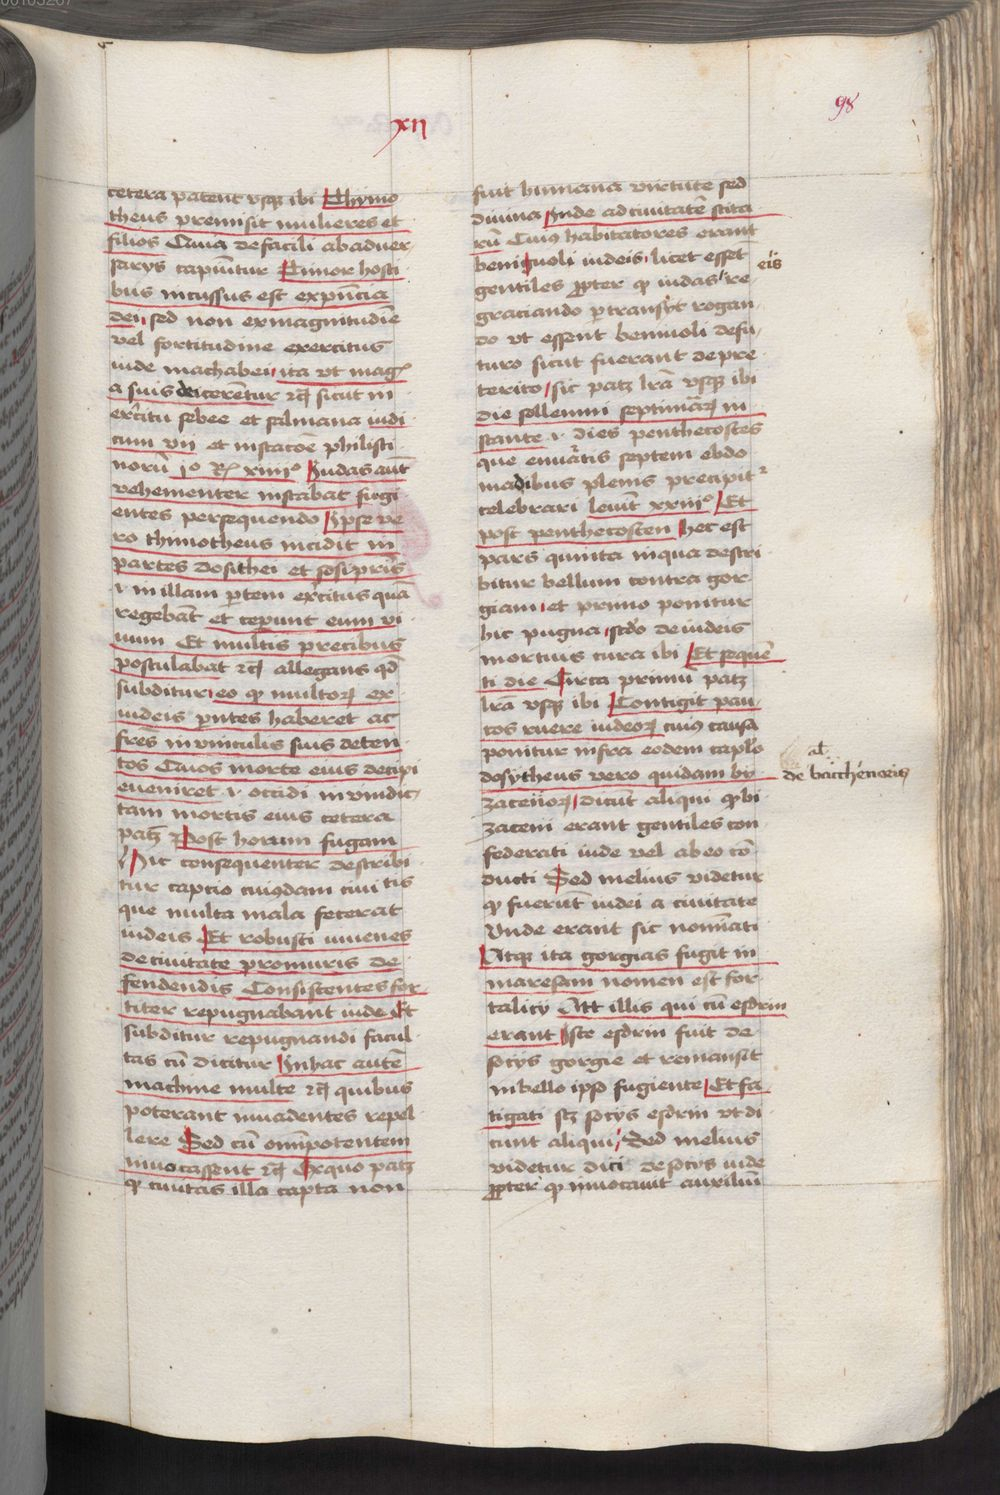 xij
98
cetera patent vsqȝ ibi Thymo
theus premisit mulieres et
filios Causa de facili ab aduer
sarys capiūtur Timor hosti
bus incussus est ex pn̄cia
dei sed non ex magnitudīe
vel fortitudine exercitus
iude machabei ita vt magꝭ
a suis deicerētur ⁊cꝭ sicut in
ex̄citu sebee et salmana iudi
cum vii et in stacōe philisti
norū jº Rꝭ xiiiiº Judas aūt
vehementer instabat fugi
entes persequendo Ipse ve
ro thimotheus incidit in
partes dosithei et sosipris̄
.i. in illam ꝑtem ex̄citus quā
regebāt et cepunt eum vi
uum Et multis precibus
postulabat ⁊cꝭ allegans qd̄
subditur eo qꝫ multoꝝ ex
iudeis pn̄tes haberet ac
fres̄ in vinculis suis deten
tos Quos morte eius decipi
eueniret .i. occidi in vindic
tam mortis eius cetera
patȝ Post horum fugam
Hic consequenter describi
tur captio cuiusdam ciui tis
que multa mala fecerat
iudeis Et robusti iuuenes
de ciuitate pro muris de
fendendis Consistentes for
titer repugnabant iude Et
subditur repugnandi facul
tas cū dicitur In hac autē
machine multe ⁊cꝭ quibus
poterant inuadentes repel
lere Sed cū om̄ipotentem
inuocassent ⁊cꝭ Ex quo patȝ
qꝫ ciuitas illa capta non
fuit humana virtute sed
diuina Inde ad ciuitatē scita
rū Cuiꝰ habitatores erant
beniuoli iudeis licet essēt
gentiles ꝓpter qꝫ iudas re
eis
graciando ꝑtransiȳt rogan
do vt essent beniuoli de fu
turo sicut fuerant de pre
terito sic patȝ lrā vsqȝ ibi
die sollemni septimāꝝ in
stante .i. dies penthecostes
que enūatis septem ebdo
madibus plenis precipitꝰ
celebrari leuit̄ xxiiiº Et
post penthecosten Hec est
pars quinta in qua descri
bitur bellum contra gor
giam et primo ponitur
hic pugna scd̄o de iudeis
mortuis cura ibi Et sequē
ti die Circa primū patȝ
lrā vsqȝ ibi Contigit pau
cos ruere iudeoꝝ cuiꝰ causa
ponitur infra eodem caplō
dosytheus vero quidam by
al̄
de bacchenoris
zacenoꝝ dicūt aliqui qꝫ bi
zaceni erant gentiles con
federati iude vel ab eo cō
ducti Sed melius videtur
qꝫ fuerūt iudei a ciuitate
Vnde erant sic nominati
Atqȝ ita gorgias fugit in
maresam nomen est for
talicij Att illis qui cū esdrin
erant Iste esdrin fuit de
socijs gorgie et remansit
in bello ipso fugiente Et fa
tigati scȝ socijs esdrin vt di
cunt aliqui Sed melius
videtur dici de socijs iude
ꝓpter qꝫ inuocauit auxiliū